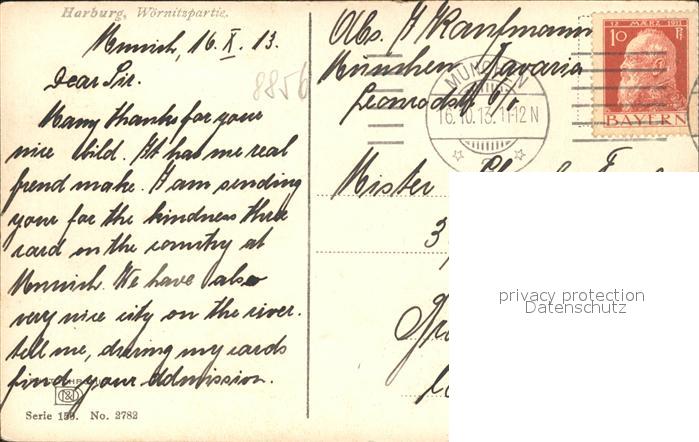 Harburg, Wörnitzpartie.
Munich, 16. X. 13.
8856
Dear Sir.
Many thanks for your
nice bild. It has me real
frend make. I am sending
your for the kindness three
card on the country at
Munich. We have also
very nice city on the river.
tell me, during my cards
find your Admission.
Serie 159. No. 2782
Abs. A Kaufmann
München, Bavaria
Leonrodstr
12. MÄRZ 1911
10 Pf
BAYERN
MÜNCHEN
16.10.13. 11-12 N
Mister
3
privacy protection
Datenschutz